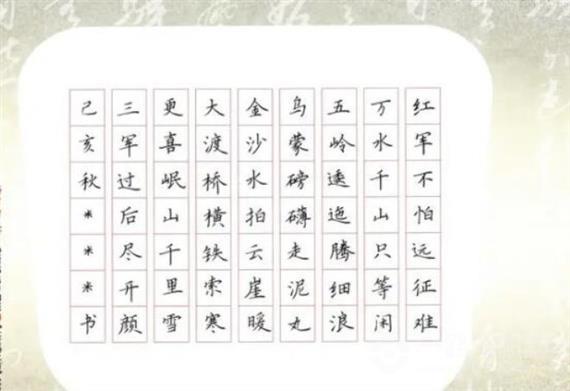 红军不怕远征难
万水千山只等闲
五岭逶迤腾细浪
乌蒙磅礴走泥丸
金沙水拍云崖暖
大渡桥横铁索寒
更喜岷山千里雪
三军过后尽开颜
己亥秋***书